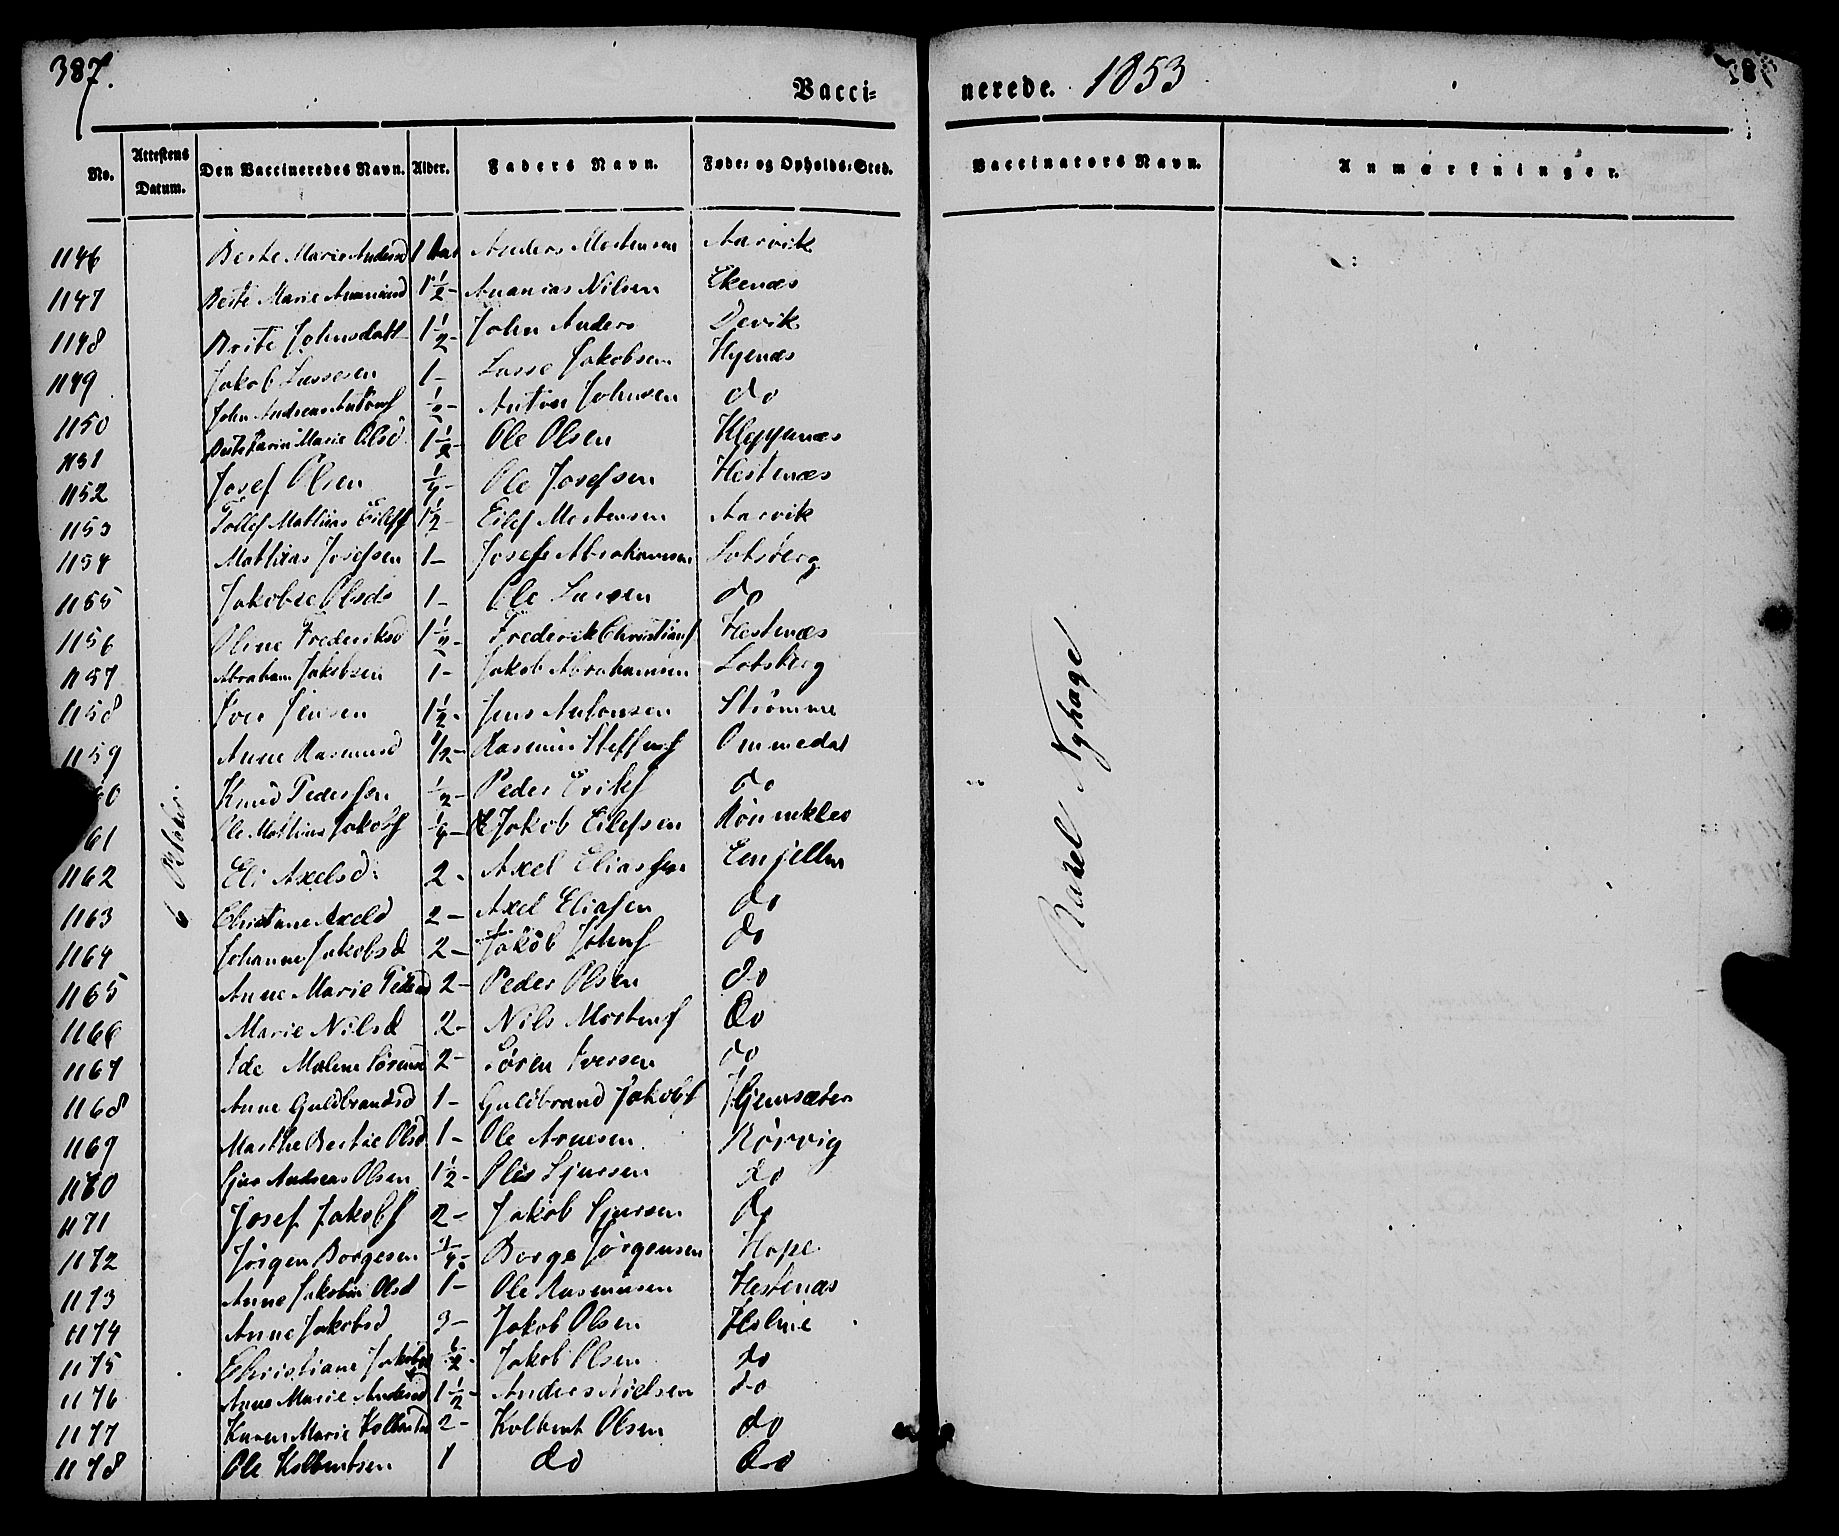 387.
Vacci=
nerede. 1853
387
No. Attestens Datum. Den Vaccineredes Navn. Alder. Faders Navn. Føde= og Opholds=Sted. Vaccinators Navn. Anmærkninger.
1146 Berte Marie Andersd 1 Aar Anders Mortensen Aarvik
1147 Berte Marie Ananiasd 1 1/2 - Ananias Nilsen Ekenæs
1148 Brite Johnsdatt 1 1/2 - John Anders Devik
1149 Jakob Lassesen 1 - Lasse Jakobsen Hyenæs
1150 John Andreas Antons 1/2 - Anton Johnsen do
1151 Berte Karin Marie Olsd 1 1/2 - Ole Olsen Kleppenæs
1152 Josef Olsen 1/4 - Ole Josefsen Hestenæs
1153 Tollef Mathias Eilefs 1 1/2 - Eilef Mortensen Aarvik
1154 Mathias Josefsen 1 - Josef Abrahamsen Lotsberg
1155 Jakobee Olsd 1 - Ole Larsen do
1156 Oline Frederiksd 1 1/2 - Frederik Christians Hestenæs
1157 Abraham Jakobsen 1 - Jakob Abrahamsen Lotsberg
1158 Iver Jensen 1 1/2 - Jens Antonsen Strømme
1159 Anne Rasmusd 1/2 - Rasmus Steffens Ommedal
60 Knud Pedersen 1/2 - Peder Eriks do
61 Ole Mathias Jakobs 1/4 - Jakob Eilefsen
1162 Eli Axelsd. 2 - Axel Eliassen
1163 Christiane Axelsd 2 - Axel Eliasen do
1164 Johanne Jakobsd 2 - Jakob Johns do
1165 Anne Marie Pedersd 2 - Peder Olsen do
1166 Marie Nilsd 2 - Nils Mortens do
1167 Ide Malene Sørensd 2 - Søren Iversen do
1168 Anne Guldbrandsd 1 - Guldbrand Jakobs Hjemsæter
1169 Marthe Bertie Olsd 1 - Ole Arnesen Rørvig
1170 Sjur Andreas Olsen 1 1/2 - Ole Sjursen do
1171 Josef Jakobs 2 - Jakob Sjursen do
1172 Jørgen Børgesen 1/4 - Børge Jørgensen Hope
1173 Anne Jakobine Olsd 1 - Ole Rasmusen Hestenæs
1174 Anne Jakobsd 3 - Jakob Olsen Holme
1175 Christiane Jakobsd 1/2 - Jakob Olsen do
1176 Anne Marie Andersd 1 1/2 - Anders Nielsen do
1177 Karen Marie Kolbentsd 2 - Kolbent Olsen do
1178 Ole Kolbentsen 1 do do
6 Oktober
Rasel Nyhage